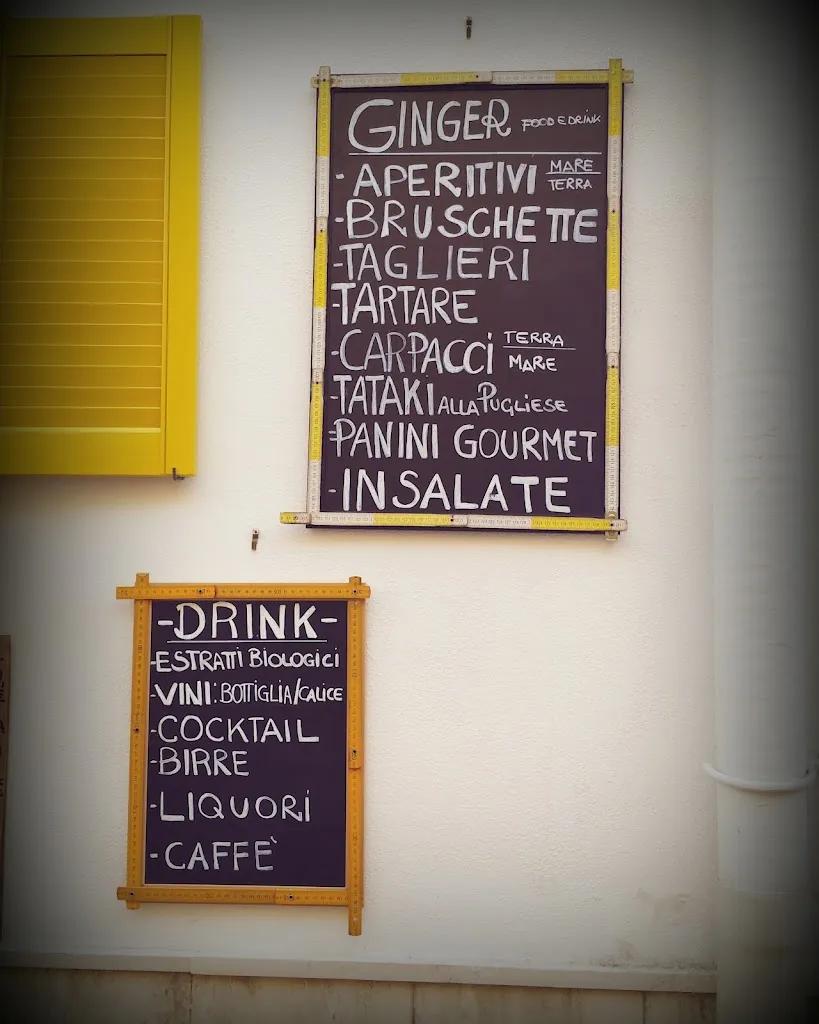 GINGER FOOD E DRINK
- APERITIVI MARE TERRA
- BRUSCHETTE
- TAGLIERI
- TARTARE
- CARPACCI TERRA MARE
- TATAKI ALLA PUGLIESE
- PANINI GOURMET
- INSALATE
- DRINK -
- ESTRATTI BIOLOGICI
- VINI: BOTTIGLIA/CALICE
- COCKTAIL
- BIRRE
- LIQUORI
- CAFFÈ